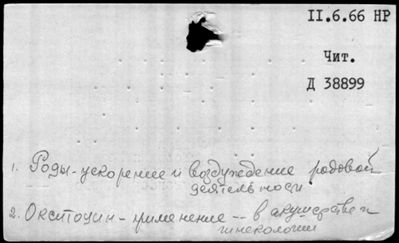 II.6.66 НР
Чит.
Д 38899
1. Роды - ускорение и возбуждение родовой
деятельности
2. Окситоцин - применение -- в акушерстве и
гинекологии